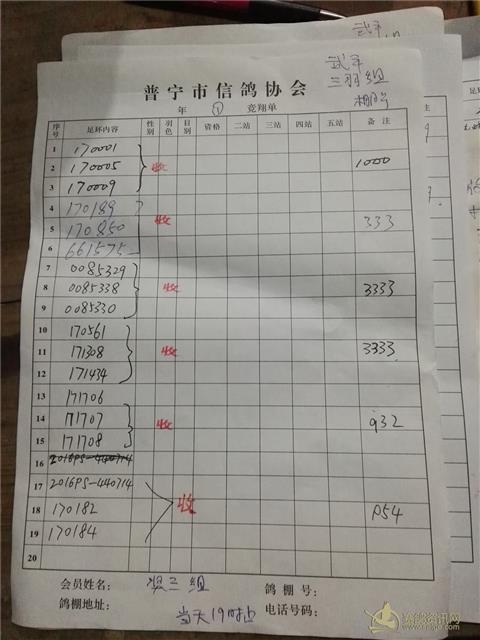 武平
三羽组
棚号
普宁市信鸽协会
年 ① 竞翔单
序号 足环内容 性别 羽色 目别 资格 二站 三站 四站 五站 备注
1 170001
2 170005 收 1000
3 170009
4 170189
5 170850 收 333
6 661575
7 0085329
8 0085338 收 3333
9 0085330
10 170561
11 171308 收 3333
12 171434
13 171706
14 171707 收 932
15 171708
16 2016PS-440714
17 2016PS-440714
18 170182 收 P54
19 170184
20
会员姓名： 三组 鸽棚号：
鸽棚地址： 当天19时占 电话号码：